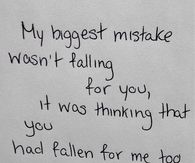 My biggest mistake
wasn't falling
for you,
it was thinking that
you
had fallen for me too